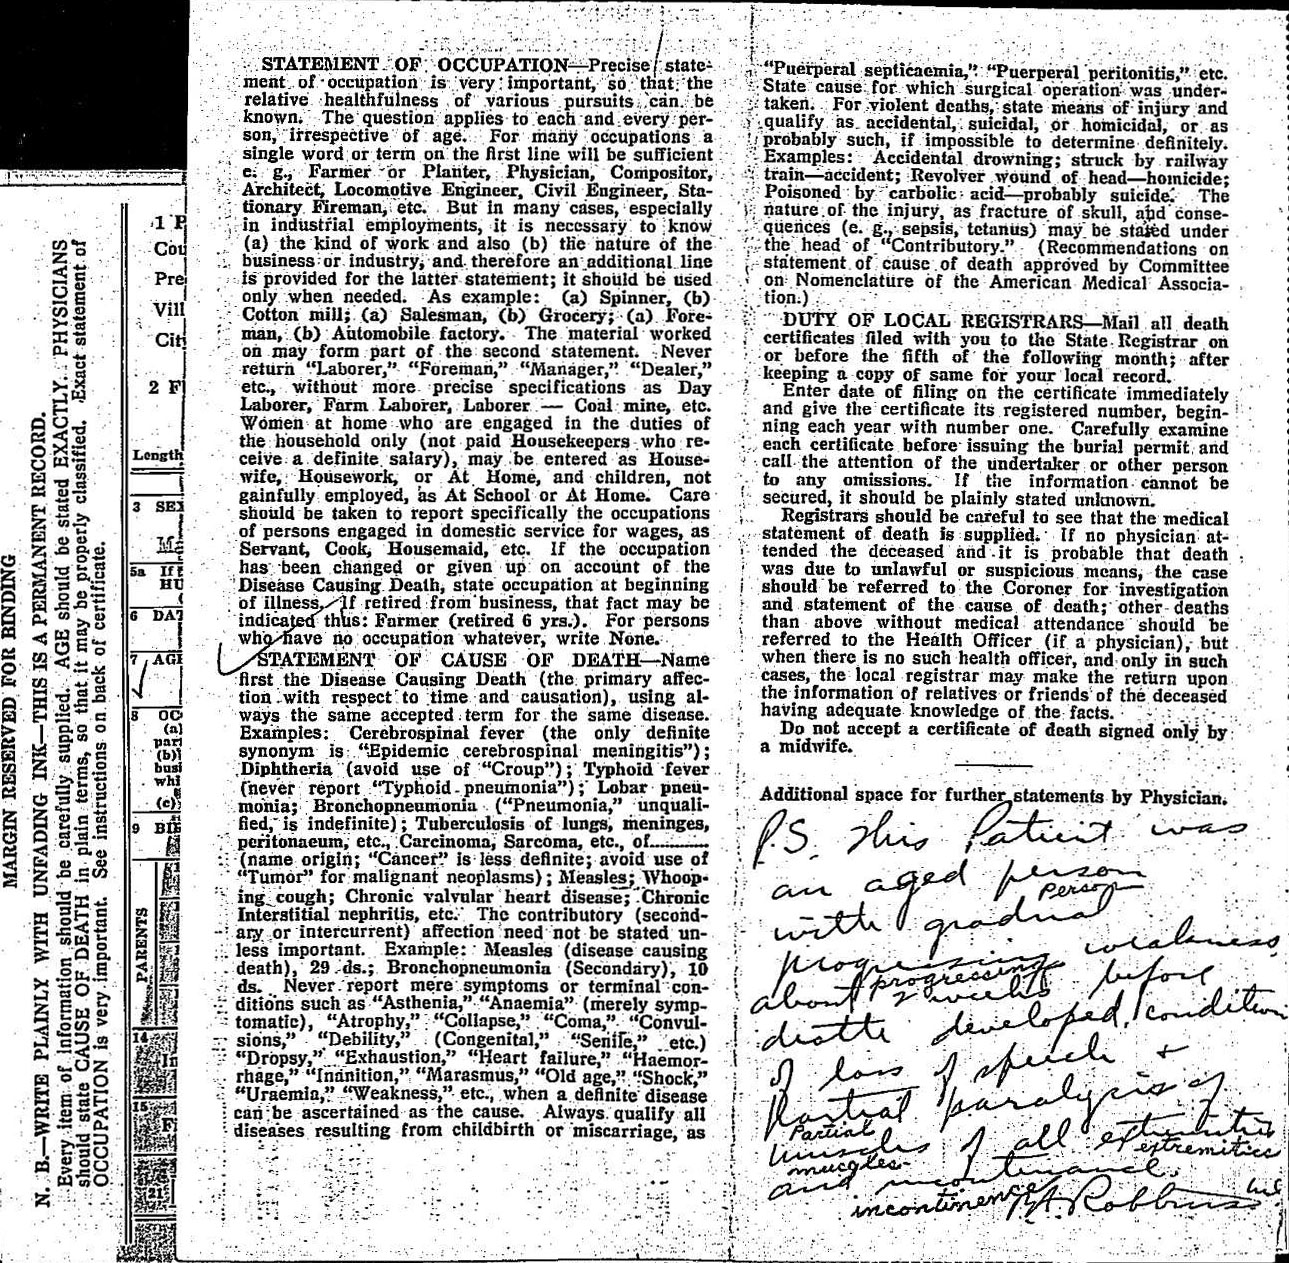 MARGIN RESERVED FOR BINDING
N. B.—WRITE PLAINLY WITH UNFADING INK—THIS IS A PERMANENT RECORD.
Every item of information should be carefully supplied. AGE should be stated EXACTLY. PHYSICIANS
should state CAUSE OF DEATH in plain terms, so that it may be properly classified. Exact statement of
OCCUPATION is very important. See instructions on back of certificate.
1 P
Cou
Pre
Vill
Cit
2 F
Length
3 SEX
Ma
5a If
HU
6 DAT
7 AGE
8 OC
(a)
part
(b)
busi
whi
(c)
9 BIR
PARENTS
14
In
15
F
STATEMENT OF OCCUPATION—Precise state-
ment of occupation is very important, so that the
relative healthfulness of various pursuits can be
known. The question applies to each and every per-
son, irrespective of age. For many occupations a
single word or term on the first line will be sufficient
e. g., Farmer or Planter, Physician, Compositor,
Architect, Locomotive Engineer, Civil Engineer, Sta-
tionary Fireman, etc. But in many cases, especially
in industrial employments, it is necessary to know
(a) the kind of work and also (b) the nature of the
business or industry, and therefore an additional line
is provided for the latter statement; it should be used
only when needed. As example: (a) Spinner, (b)
Cotton mill; (a) Salesman, (b) Grocery; (a) Fore-
man, (b) Automobile factory. The material worked
on may form part of the second statement. Never
return "Laborer," "Foreman," "Manager," "Dealer,"
etc., without more precise specifications as Day
Laborer, Farm Laborer, Laborer — Coal mine, etc.
Women at home who are engaged in the duties of
the household only (not paid Housekeepers who re-
ceive a definite salary), may be entered as House-
wife, Housework, or At Home, and children, not
gainfully employed, as At School or At Home. Care
should be taken to report specifically the occupations
of persons engaged in domestic service for wages, as
Servant, Cook, Housemaid, etc. If the occupation
has been changed or given up on account of the
Disease Causing Death, state occupation at beginning
of illness. If retired from business, that fact may be
indicated thus: Farmer (retired 6 yrs.). For persons
who have no occupation whatever, write None.
STATEMENT OF CAUSE OF DEATH—Name
first the Disease Causing Death (the primary affec-
tion with respect to time and causation), using al-
ways the same accepted term for the same disease.
Examples: Cerebrospinal fever (the only definite
synonym is "Epidemic cerebrospinal meningitis");
Diphtheria (avoid use of "Croup"); Typhoid fever
(never report "Typhoid pneumonia"); Lobar pneu-
monia; Bronchopneumonia ("Pneumonia," unquali-
fied, is indefinite); Tuberculosis of lungs, meninges,
peritonaeum, etc., Carcinoma, Sarcoma, etc., of..........
(name origin; "Cancer" is less definite; avoid use of
"Tumor" for malignant neoplasms); Measles; Whoop-
ing cough; Chronic valvular heart disease; Chronic
Interstitial nephritis, etc. The contributory (second-
ary or intercurrent) affection need not be stated un-
less important. Example: Measles (disease causing
death), 29 ds.; Bronchopneumonia (Secondary), 10
ds. Never report mere symptoms or terminal con-
ditions such as "Asthenia," "Anaemia" (merely symp-
tomatic), "Atrophy," "Collapse," "Coma," "Convul-
sions," "Debility," (Congenital," "Senile," etc.)
"Dropsy," "Exhaustion," "Heart failure," "Haemor-
rhage," "Inanition," "Marasmus," "Old age," "Shock,"
"Uraemin," "Weakness," etc., when a definite disease
can be ascertained as the cause. Always qualify all
diseases resulting from childbirth or miscarriage, as
"Puerperal septicaemia," "Puerperal peritonitis," etc.
State cause for which surgical operation was under-
taken. For violent deaths, state means of injury and
qualify as accidental, suicidal, or homicidal, or as
probably such, if impossible to determine definitely.
Examples: Accidental drowning; struck by railway
train—accident; Revolver wound of head—homicide;
Poisoned by carbolic acid—probably suicide. The
nature of the injury, as fracture of skull, and conse-
quences (e. g., sepsis, tetanus) may be stated under
the head of "Contributory." (Recommendations on
statement of cause of death approved by Committee
on Nomenclature of the American Medical Associa-
tion.)
DUTY OF LOCAL REGISTRARS—Mail all death
certificates filed with you to the State Registrar on
or before the fifth of the following month; after
keeping a copy of same for your local record.
Enter date of filing on the certificate immediately
and give the certificate its registered number, begin-
ning each year with number one. Carefully examine
each certificate before issuing the burial permit and
call the attention of the undertaker or other person
to any omissions. If the information cannot be
secured, it should be plainly stated unknown.
Registrars should be careful to see that the medical
statement of death is supplied. If no physician at-
tended the deceased and it is probable that death
was due to unlawful or suspicious means, the case
should be referred to the Coroner for investigation
and statement of the cause of death; other deaths
than above without medical attendance should be
referred to the Health Officer (if a physician), but
when there is no such health officer, and only in such
cases, the local registrar may make the return upon
the information of relatives or friends of the deceased
having adequate knowledge of the facts.
Do not accept a certificate of death signed only by
a midwife.
Additional space for further statements by Physician.
P.S. This Patient was
an aged person
person
with gradual
progressing weakness,
progressing
about 2 weeks before
death developed condition
of loss of speech +
Partial paralysis of
Partial
muscles of all extremities
muscles extremities
and incontinence.
incontinence
Robbins